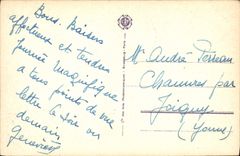 Bons Baisers
affectueux et tendres
journée magnifique
à tous points de vue
lettre ce soir ou
demain
Geneviève
Mr André Perreau
Chamvres par
Joigny
(Yonne)